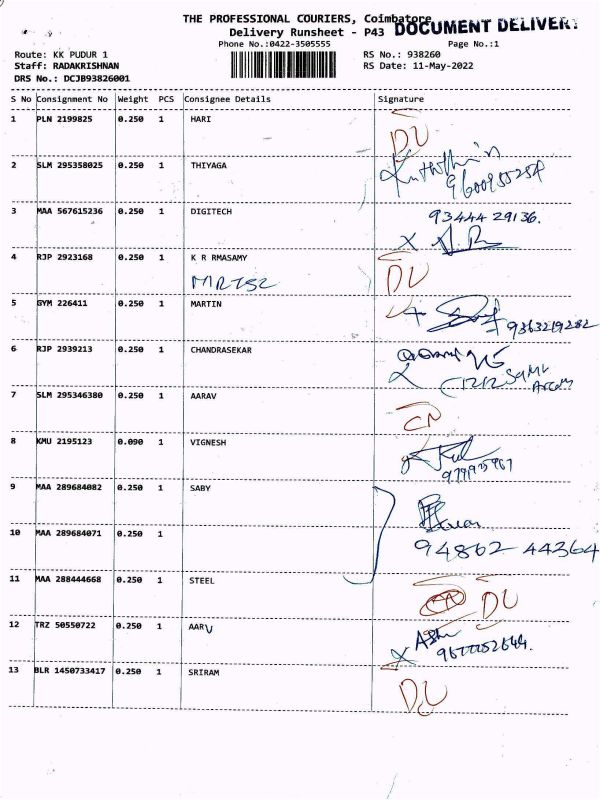 THE PROFESSIONAL COURIERS, Coimbatore
DOCUMENT DELIVERY
Delivery Runsheet - P43
Phone No.:0422-3505555
Page No.:1
Route: KK PUDUR 1
RS No.: 938260
Staff: RADAKRISHNAN
RS Date: 11-May-2022
DRS No.: DCJB93826001
S No Consignment No Weight PCS Consignee Details Signature
1 PLN 2199825 0.250 1 HARI
DU
2 SLM 295358025 0.250 1 THIYAGA
9600955254
3 MAA 567615236 0.250 1 DIGITECH 93444 29136.
4 RJP 2923168 0.250 1 K R RMASAMY
DU
5 GYM 226411 0.250 1 MARTIN
9363219282
6 RJP 2939213 0.250 1 CHANDRASEKAR
7 SLM 295346380 0.250 1 AARAV
CN
8 KMU 2195123 0.090 1 VIGNESH
9 MAA 289684082 0.250 1 SABY
10 MAA 289684071 0.250 1
94862 44364
11 MAA 288444668 0.250 1 STEEL
DU
12 TRZ 50550722 0.250 1 AARV
13 BLR 1450733417 0.250 1 SRIRAM
DU